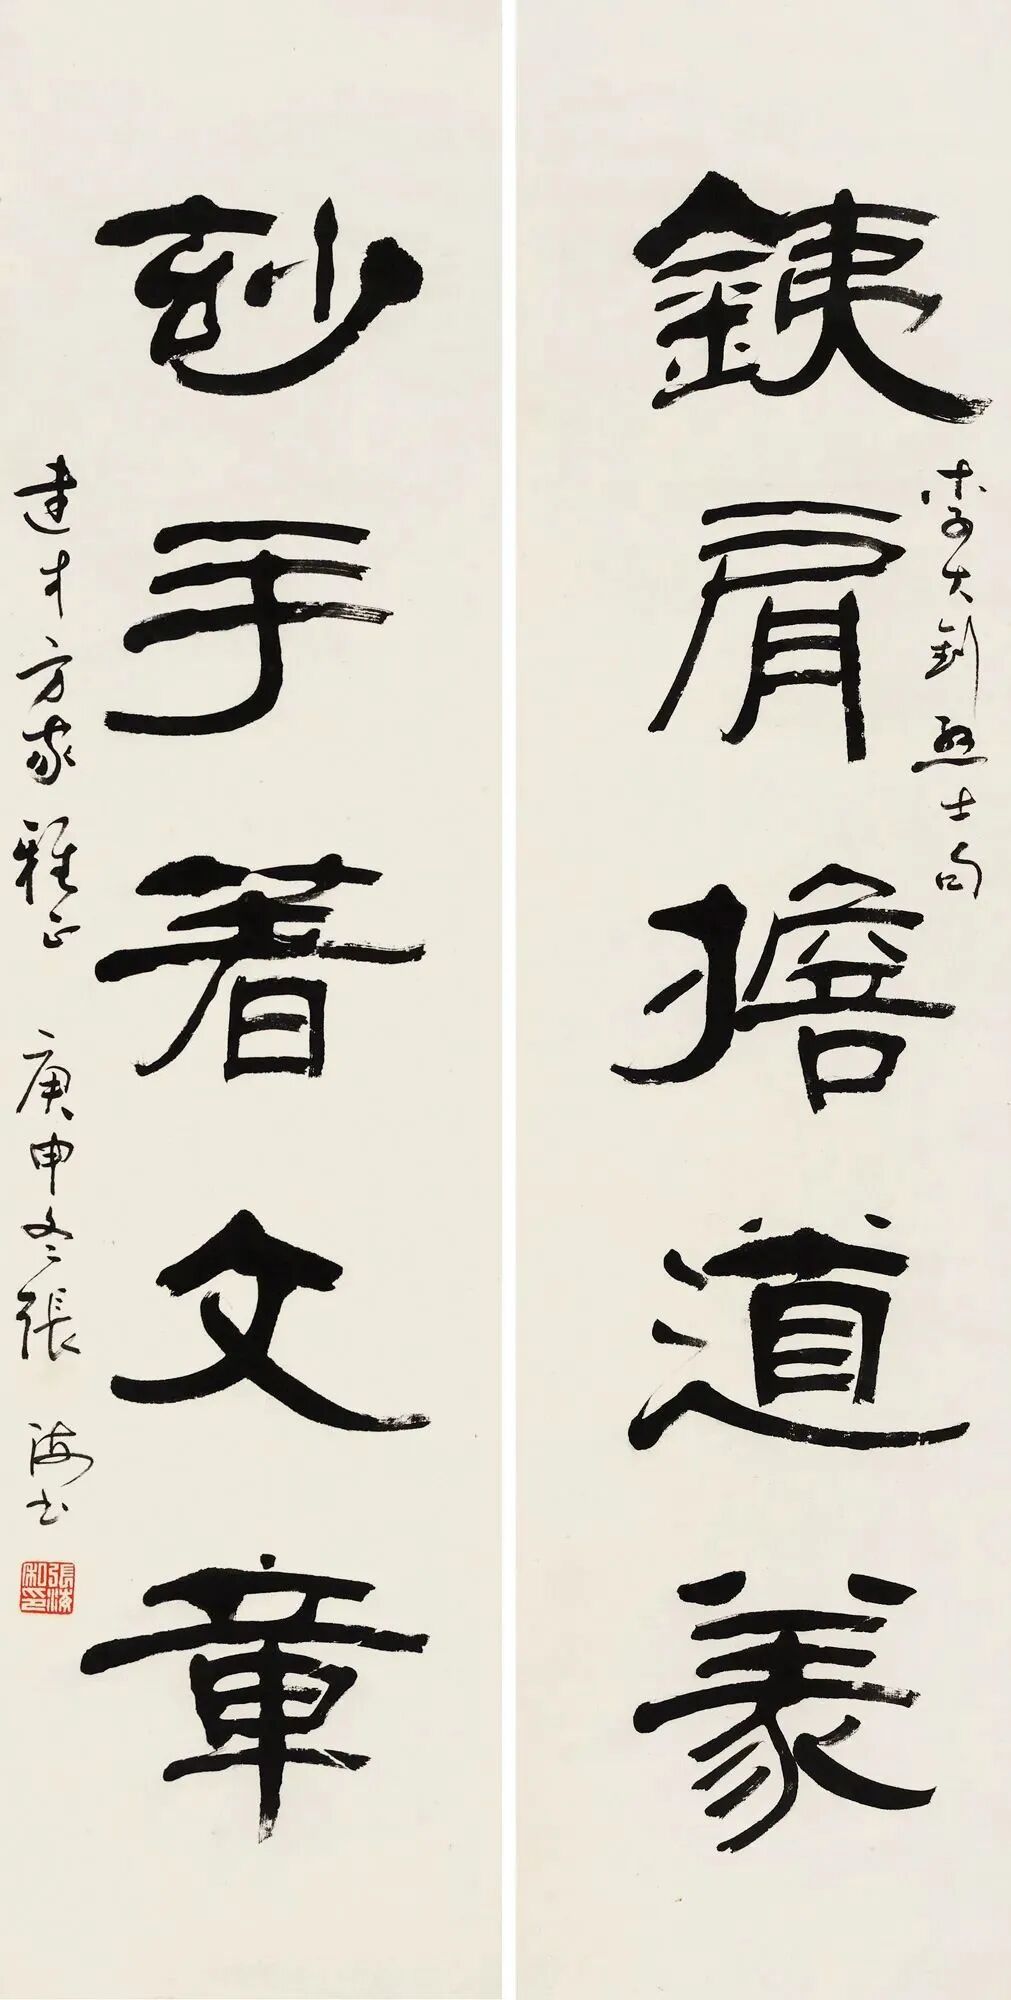 李大釗烈士句
銕肩擔道義
玅手著文章
建才方家雅正 庚申冬張海書
張海私印